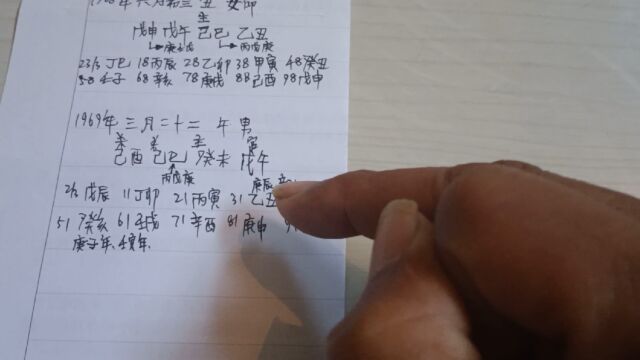 1968年 六月初三 丑 女命
主
戊申 戊午 己巳 乙丑
丙戊庚
23/3 丁巳 18丙辰 28乙卯 38甲寅 48癸丑
58壬子 68辛亥 78庚戌 88己酉 98戊申
1969年 三月二十二 午 男
己酉 己巳 癸未 戊午
丙戊庚
庚辰
戊辰 11丁卯 21丙寅 31乙丑
51癸亥 61壬戌 71辛酉 81庚申
庚子年、壬寅年、